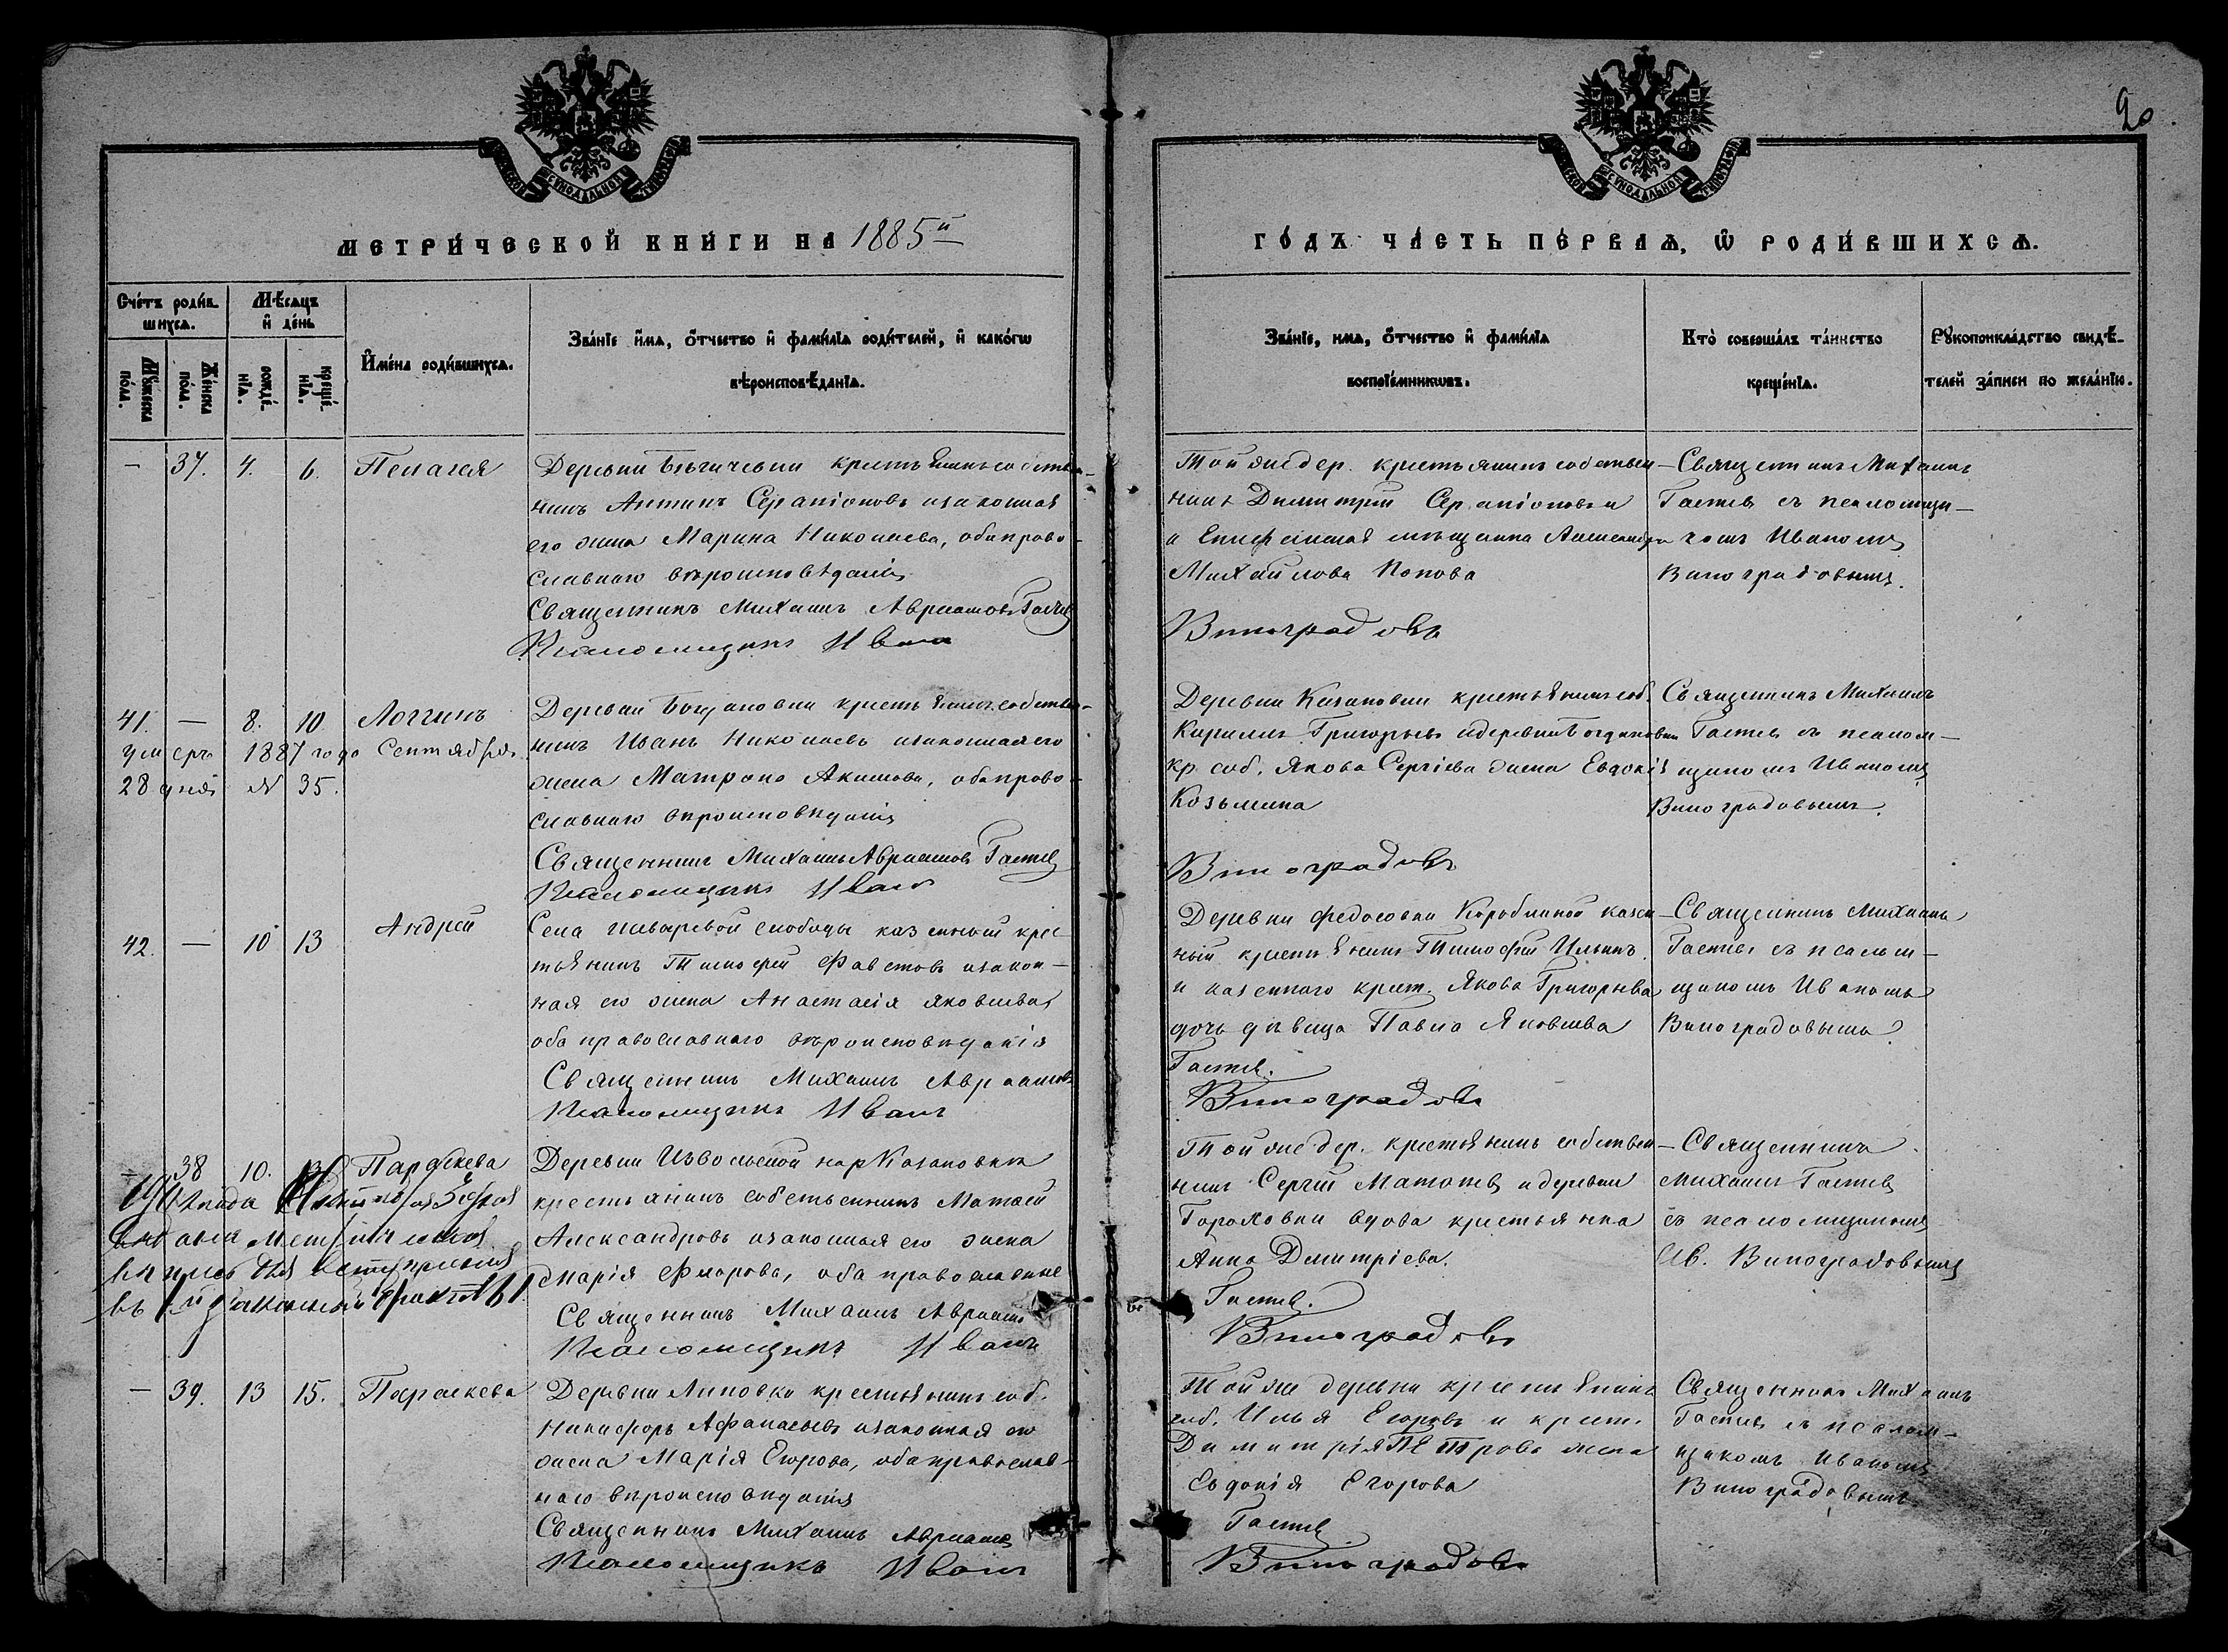 20
МЕТРИЧЕСКОЙ КНИГИ НА 1885й
ГОДЪ ЧАСТЬ ПЕРВАЯ, Ѡ РОДИВШИХСЯ.
Счетъ родившихся.
Мѣсяцъ и день
Мужеска пола.
Женска пола.
рожденія.
крещенія.
Имена родившихся.
Званіе имя, отчество и фамилія родителей, и какогѡ
вѣроисповѣданія.
Званіе, имя, отчество и фамилія
воспріемниковъ.
Кто совершалъ таинство
крещенія.
Рукоприкладство свидѣ-
телей записи по желанію.
— 37. 4. 6. Пелагея
Деревни крестьянинъ собствен-
никъ Антипъ Серапіоновъ и законная
его жена Марина Николаева, оба право-
славнаго вѣроисповѣданія
Священникъ Михаилъ Авраамовъ Гастев
Псаломщикъ Иванъ
Той же дер. крестьянинъ собствен-
никъ Димитрій Серапіоновъ и
и Епифанская мѣщанка Александра
Михайлова Попова
Виноградовъ
Священникъ Михаилъ
Гастев съ псаломщи-
комъ Иваномъ
Виноградовымъ.
41. — 8. 10. Логгинъ
умеръ 1887 года Сентября
28 дня № 35.
Деревни Богдановки крестьянинъ собствен-
никъ Иванъ Николаевъ и законная его
жена Матрона Акимова, оба право-
славнаго вѣроисповѣданія
Священникъ Михаилъ Авраамовъ Гастев
Псаломщикъ Иванъ
Деревни Казановки крестьянинъ соб.
Кириллъ Григорьевъ и деревни Богдановки
кр. соб. Якова Сергіева жена Евдокія
Козьмина
Виноградовъ
Священникъ Михаилъ
Гастев съ псалом-
щикомъ Иваномъ
Виноградовымъ.
42. — 10 13 Андрей
Села слободы казенный крес-
тьянинъ Тимофей Фавстовъ и закон-
ная его жена Анастасія Яковлева,
оба православнаго вѣроисповѣданія
Священникъ Михаилъ Авраамовъ
Псаломщикъ Иванъ
Деревни Федосовки казен-
ный крестьянинъ Тимофей Ильинъ
и казеннаго крест. Якова Григорьева
дочь дѣвица Павла Яковлева
Гастев.
Виноградовъ
Священникъ Михаилъ
Гастев съ псалом-
щикомъ Иваномъ
Виноградовымъ
— 38 10. 13 Параскева
Деревни Извольской Казановки
крестьянинъ собственникъ Матвей
Александровъ и законная его жена
Марія Фролова, оба православные
Священникъ Михаилъ Авраамов
Псаломщикъ Иванъ
Той же дер. крестьянинъ собствен-
никъ Сергій Матвѣев и деревни
Гороховки вдова крестьянка
Анна Дмитріева.
Гастев.
Виноградовъ
Священникъ
Михаилъ Гастев
съ псаломщикомъ
Ив. Виноградовымъ
выдана метрическая
— 39. 13 15. Параскева
Деревни Липовки крестьянинъ соб.
Никифоръ Афанасьевъ и законная его
жена Марія Егорова, оба православ-
наго вѣроисповѣданія
Священникъ Михаилъ Авраамов
Псаломщикъ Иванъ
Той же деревни крестьянинъ
соб. Илья Егоровъ и крест.
Димитрія Петрова жена
Евдокія Егорова
Гастев
Виноградовъ
Священникъ Михаилъ
Гастев съ псалом-
щикомъ Иваномъ
Виноградовымъ